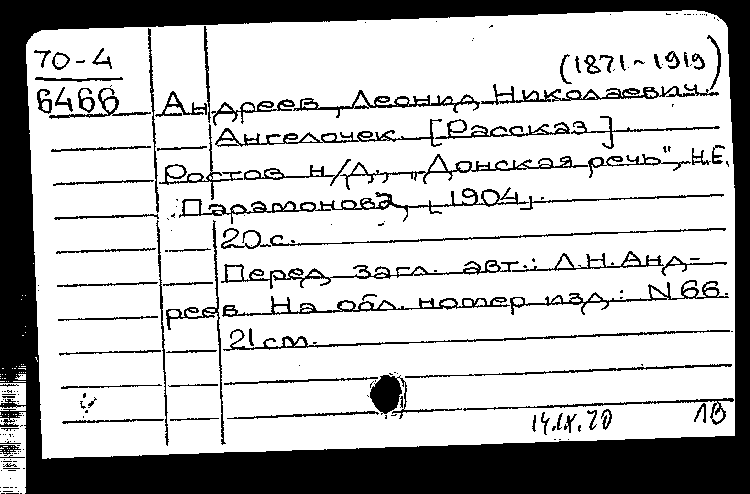 70-4
6466
(1871-1919)
Андреев, Леонид Николаевич.
Ангелочек. [Рассказ].
Ростов н/Д., "Донская речь", Н.Е.
Парамонова, [1904].
20 с.
Перед загл. авт.: Л.Н.Анд-
реев. На обл. номер изд.: N 66.
21 см.
14.IX.70